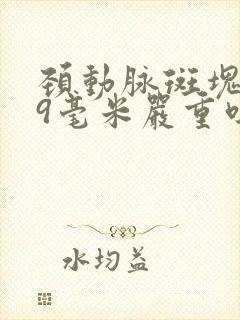 頚動脉斑塊
9毫米嚴重
水均益